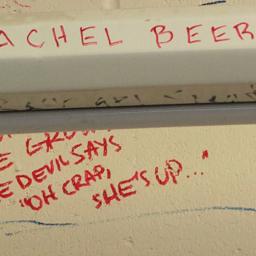 ACHEL BEER
E GROUN
E DEVIL SAYS
"OH CRAP,
SHE'S UP..."